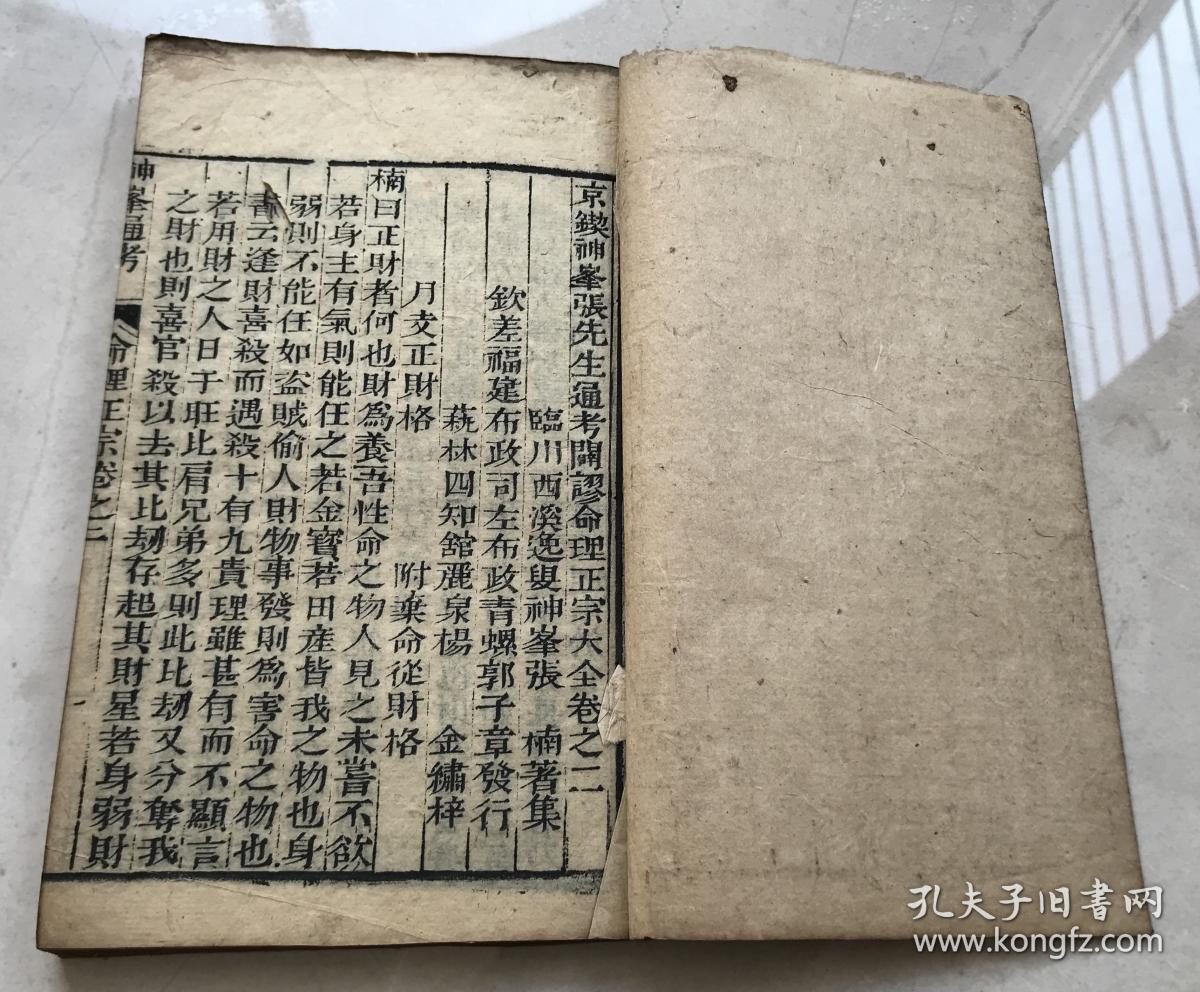 京鍥神峯張先生通考闢謬命理正宗大全卷之二
臨川西溪逸叟神峯張 楠著集
欽差福建布政司左布政青螺郭子章發行
蓺林四知舘麗泉楊 金繡梓
月支正財格 附棄命從財格
楠曰正財者何也財爲養吾性命之物人見之未嘗不欲
若身主有氣則能任之若金寳若田産皆我之物也身
弱則不能任如盗賊偷人財物事發則爲害命之物也
書云逢財喜殺而遇殺十有九貴理雖甚有而不顯言
若用財之人日干旺比肩兄弟多則此比刼又分奪我
之財也則喜官殺以去其比刼存起其財星若身弱財
神峯通考 命理正宗卷之二
孔夫子旧书网
www.kongfz.com